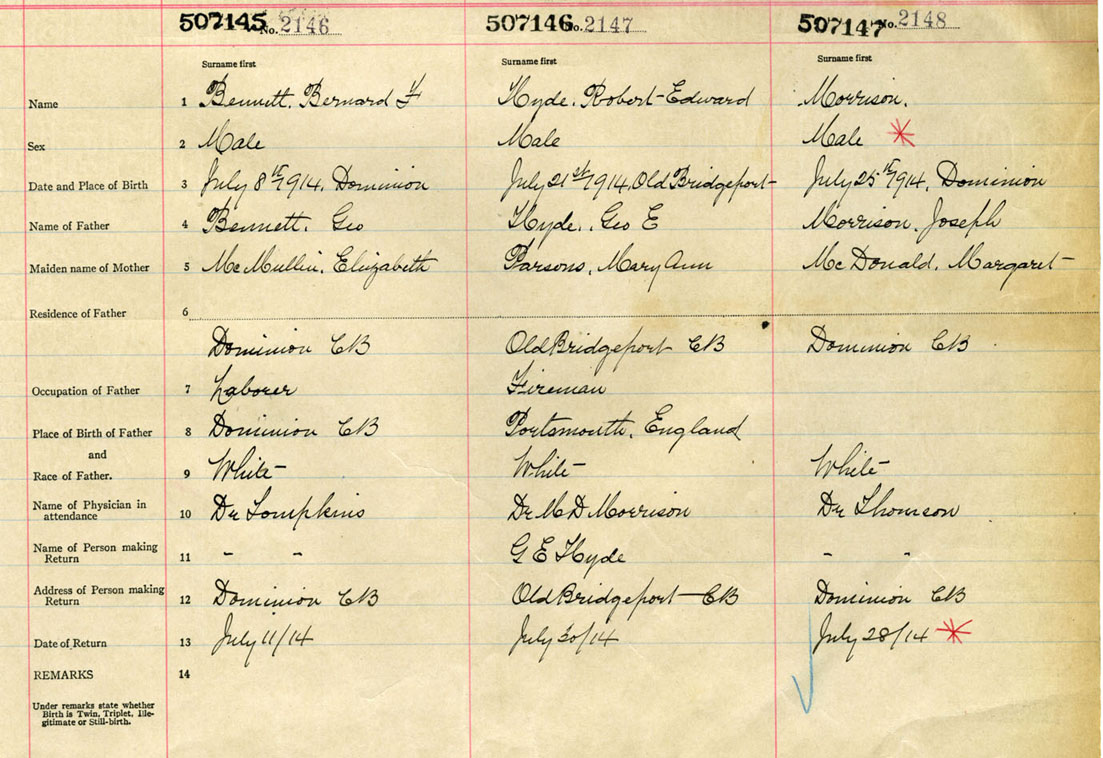 507145 No. 2146 507146 No. 2147 507147 No. 2148
Surname first Surname first Surname first
Name 1 Bennett, Bernard F Hyde, Robert Edward Morrison.
Sex 2 Male Male Male *
Date and Place of Birth 3 July 8th 1914, Dominion July 21st 1914, Old Bridgeport July 25th 1914, Dominion
Name of Father 4 Bennett, Geo Hyde, Geo E Morrison, Joseph
Maiden name of Mother 5 McMullin, Elizabeth Parsons, Mary Ann McDonald, Margaret
Residence of Father 6
Dominion CB Old Bridgeport CB Dominion CB
Occupation of Father 7 Laborer Fireman
Place of Birth of Father 8 Dominion CB Portsmouth, England
and
Race of Father. 9 White White White
Name of Physician in
attendance 10 Dr Tompkins Dr M D Morrison Dr Thomson
Name of Person making
Return 11 - - G E Hyde - -
Address of Person making
Return 12 Dominion CB Old Bridgeport - CB Dominion CB
Date of Return 13 July 11/14 July 30/14 July 28/14 *
REMARKS 14
Under remarks state whether
Birth is Twin, Triplet, Ille-
gitimate or Still-birth.